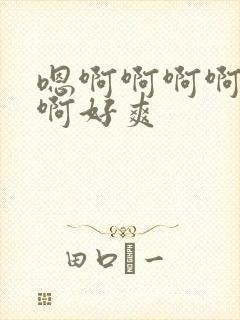 嗯啊啊啊啊
啊好爽
田口 一